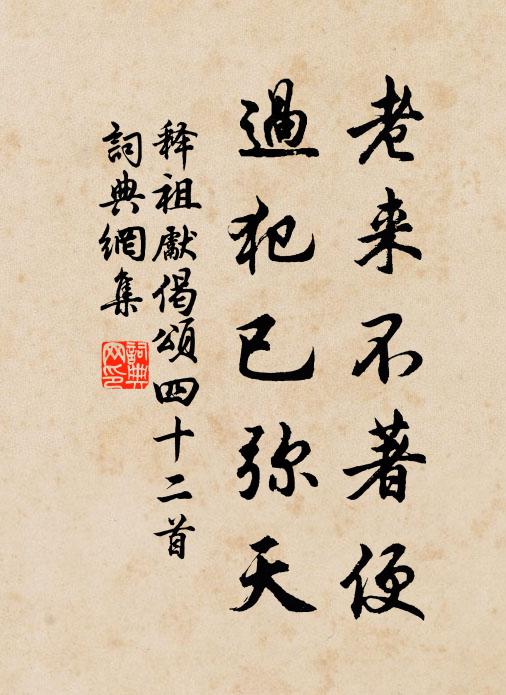 老来不著便
過犯已弥天
释祖獻偈頌四十二首
詞典網集
詞典网印